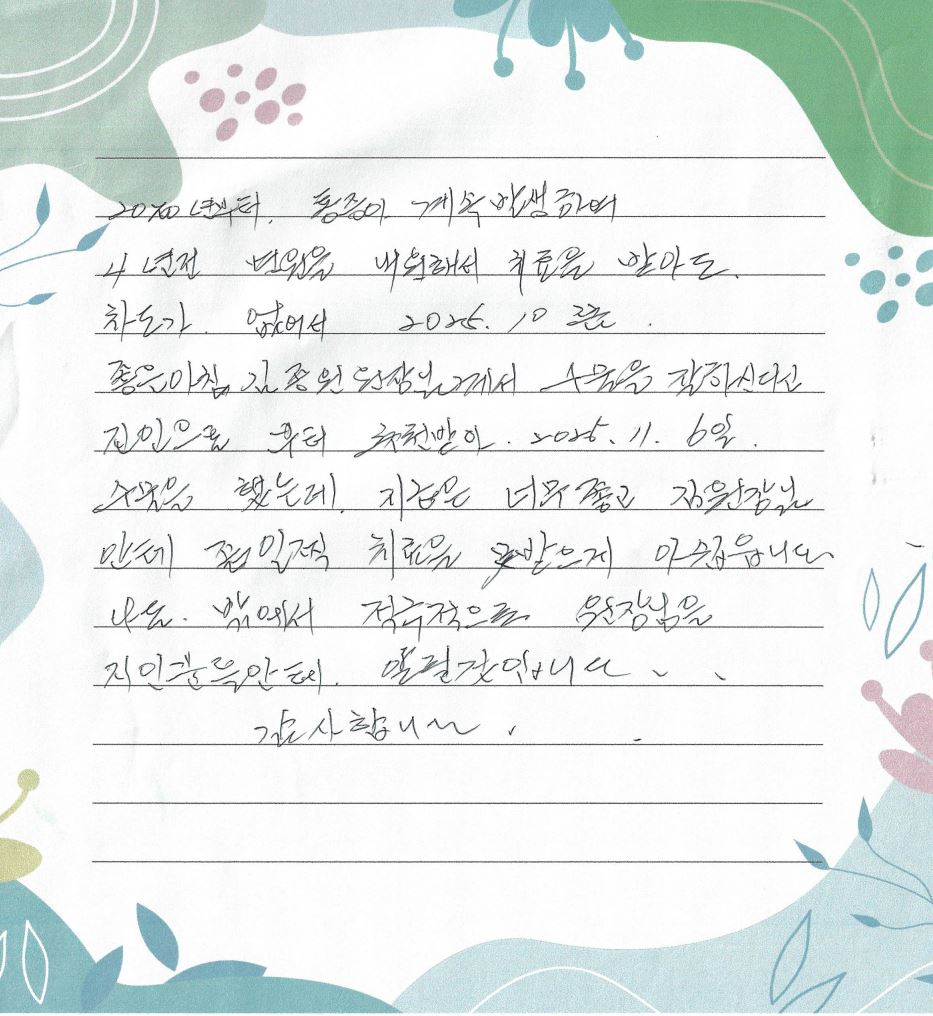 20 년부터. 통증이 계속 발생하여
4년전 병원을 내원해서 치료를 받아도.
차도가. 없어서 2025. 10 경.
좋은아침 김종원 원장님께서 수술을 잘하신다고
지인으로 부터 추천받아. 2025. 11. 6일.
수술을 했는데. 지금은 너무좋고 김원장님
안테 좀 일찍 치료을 못받은게 아쉽읍니다
나는. 밖에서 적극적으로 원장님을
지인분들안테. 알릴것입니다
감사합니다.